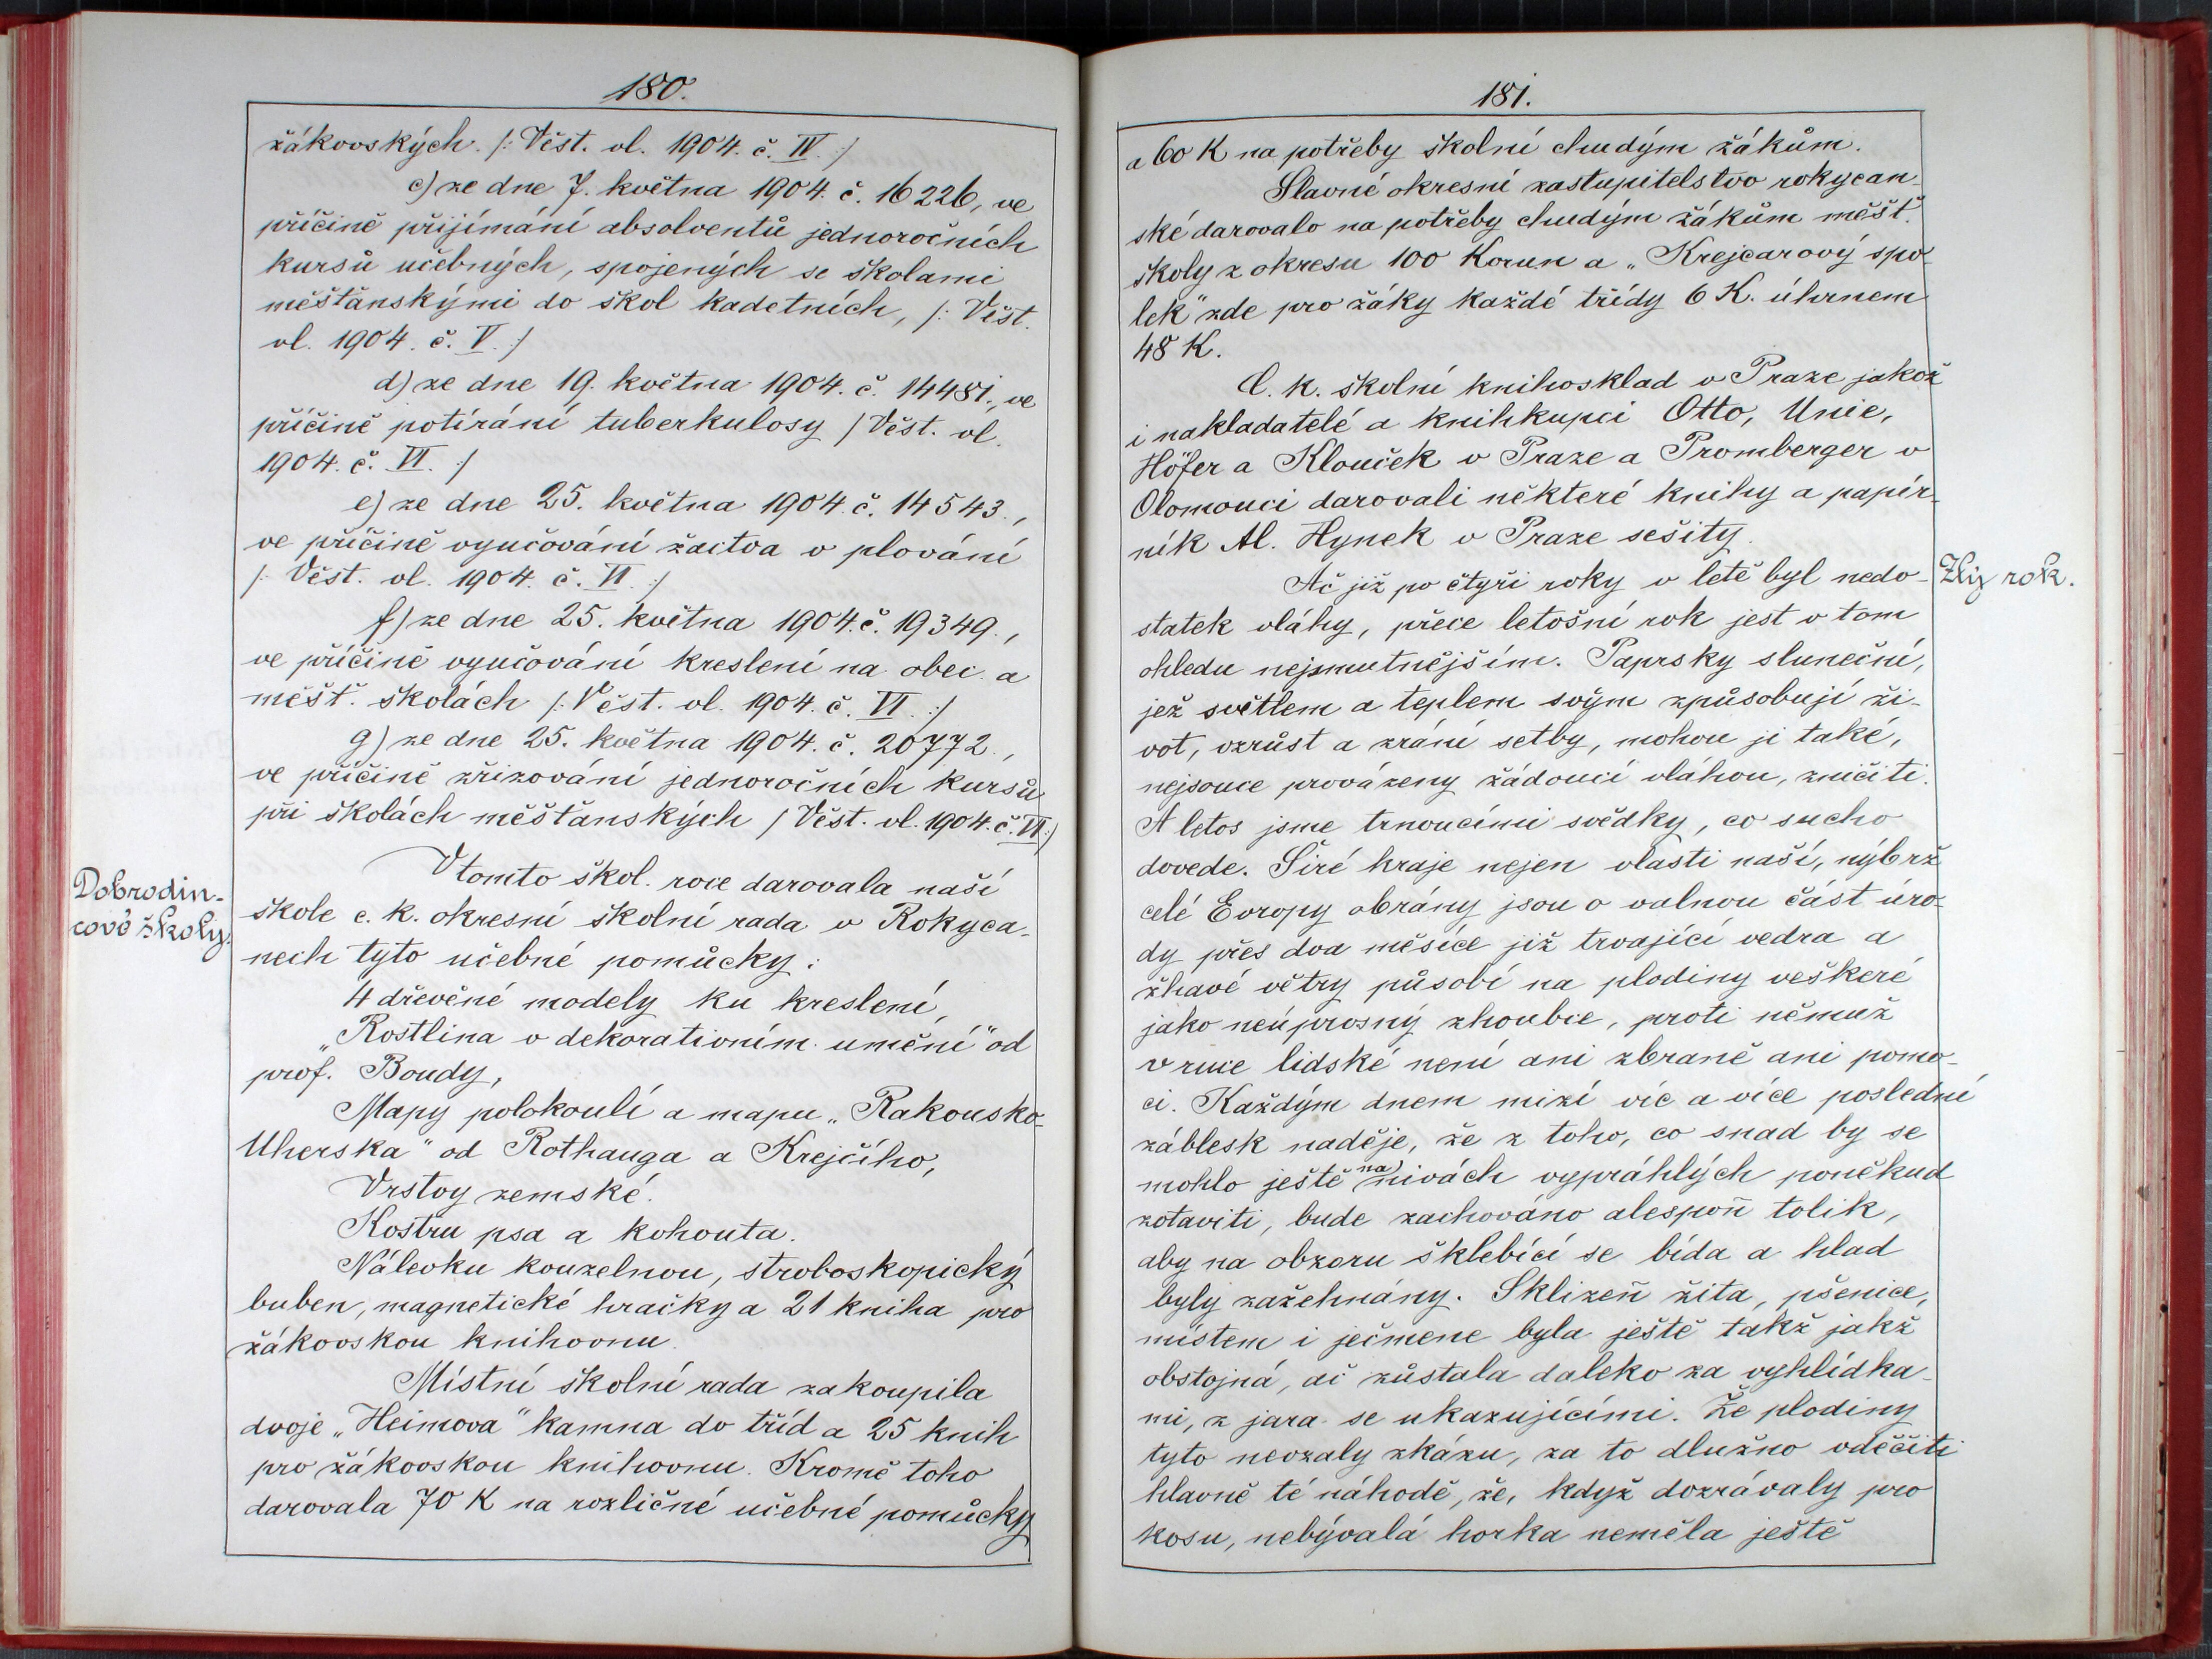 180.
žákovských. /: Věst. vl. 1904. č. IV. :/
c) ze dne 7. května 1904. č. 16226, ve
příčině přijímání absolventů jednoročních
kursů učebných, spojených se školami
měšťanskými do škol kadetních, /: Věst.
vl. 1904. č. V. :/
d) ze dne 19. května 1904. č. 14481., ve
příčině potírání tuberkulosy / Věst. vl.
1904. č. VI. :/
e) ze dne 25. května 1904. č. 14543.,
ve příčině vyučování žactva v plování
/: Věst. vl. 1904. č. VI. :/
f) ze dne 25. května 1904. č. 19349.,
ve příčině vyučování kreslení na obec. a
měšť. školách /: Věst. vl. 1904. č. VI. :/
g) ze dne 25. května 1904. č. 20772.,
ve příčině zřizování jednoročních kursů
při školách měšťanských / Věst. vl. 1904. č. VI :/
Dobrodin-
cové školy.
V tomto škol. roce darovala naší
škole c. k. okresní školní rada v Rokyca-
nech tyto učebné pomůcky:
4 dřevěné modely ku kreslení,
„Rostlina v dekorationím umění" od
prof. Boudy,
Mapy polokoulí a mapu „Rakousko-
Uherska" od Rothauga a Krejčího,
Vrstvy zemské.
Kostru psa a kohouta.
Nálevku kouzelnou, stroboskopický
buben, magnetické hračky a 21 kniha pro
žákovskou knihovnu.
Místní školní rada zakoupila
dvoje „Heimova" kamna do tříd a 25 knih
pro žákovskou knihovnu. Kromě toho
darovala 70 K na rozličné učebné pomůcky
181.
a 60 K na potřeby školní chudým žákům.
Slavné okresní zastupitelstvo rokycan-
ské darovalo na potřeby chudým žákům měšť.
školy z okresu 100 Korun a „Krejcarový spo-
lek" zde pro žáky každé třídy 6 K. úhrnem
48 K.
C. k. školní knihosklad v Praze jakož
i nakladatelé a knihkupci Otto, Unie,
Höfer a Klouček v Praze a Promberger v
Olomouci darovali některé knihy a papír-
ník Al. Hynek v Praze sešity.
Ač již po čtyři roky v letě byl nedo-
Zlý rok.
statek vláhy, přece letošní rok jest v tom
ohledu nejsmutnějším. Paprsky sluneční,
jež světlem a teplem svým způsobují ži-
vot, vzrůst a zrání setby, mohou ji také,
nejsouce provázeny žádoucí vláhou, zničiti.
A letos jsme trnoucími svědky, co sucho
dovede. Širé kraje nejen vlasti naší, nýbrž
celé Evropy obrány jsou o valnou část úro-
dy přes dva měsíce již trvající vedra a
žhavé větry působí na plodiny veškeré
jako neúprosný zhoubce, proti němuž
v ruce lidské není ani zbraně ani pomo-
ci. Každým dnem mizí víc a více poslední
záblesk naděje, že z toho, co snad by se
mohlo ještě na nivách vyprahlých poněkud
zotaviti, bude zachováno alespoň tolik,
aby na obzoru šklebící se bída a hlad
byly zažehnány. Sklizeň žita, pšenice,
místem i ječmene byla ještě takž jakž
obstojná, ač zůstala daleko za vyhlídka-
mi, z jara se ukazujícími. Že plodiny
tyto nevzaly zkázu, za to dlužno vděčiti
hlavně té náhodě, že, když dozrávaly pro
kosu, nebývalá horka neměla ještě